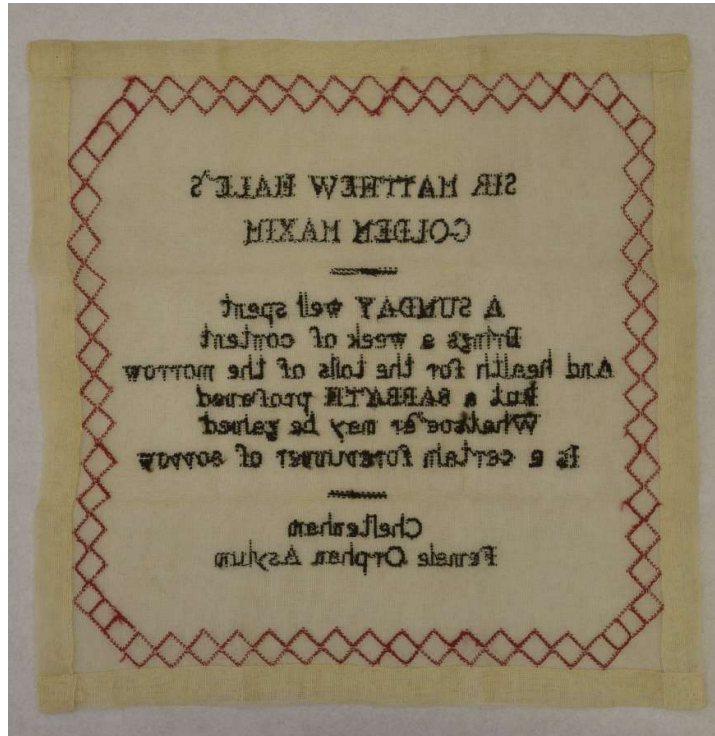 SIR MATTHEW HALE'S
GOLDEN MAXIM
A SUNDAY well spent
Brings a week of content
And health for the toils of the morrow
But a SABBATH profaned
Whatsoe'er may be gained
Is a certain forerunner of sorrow
Cheltenham
Female Orphan Asylum